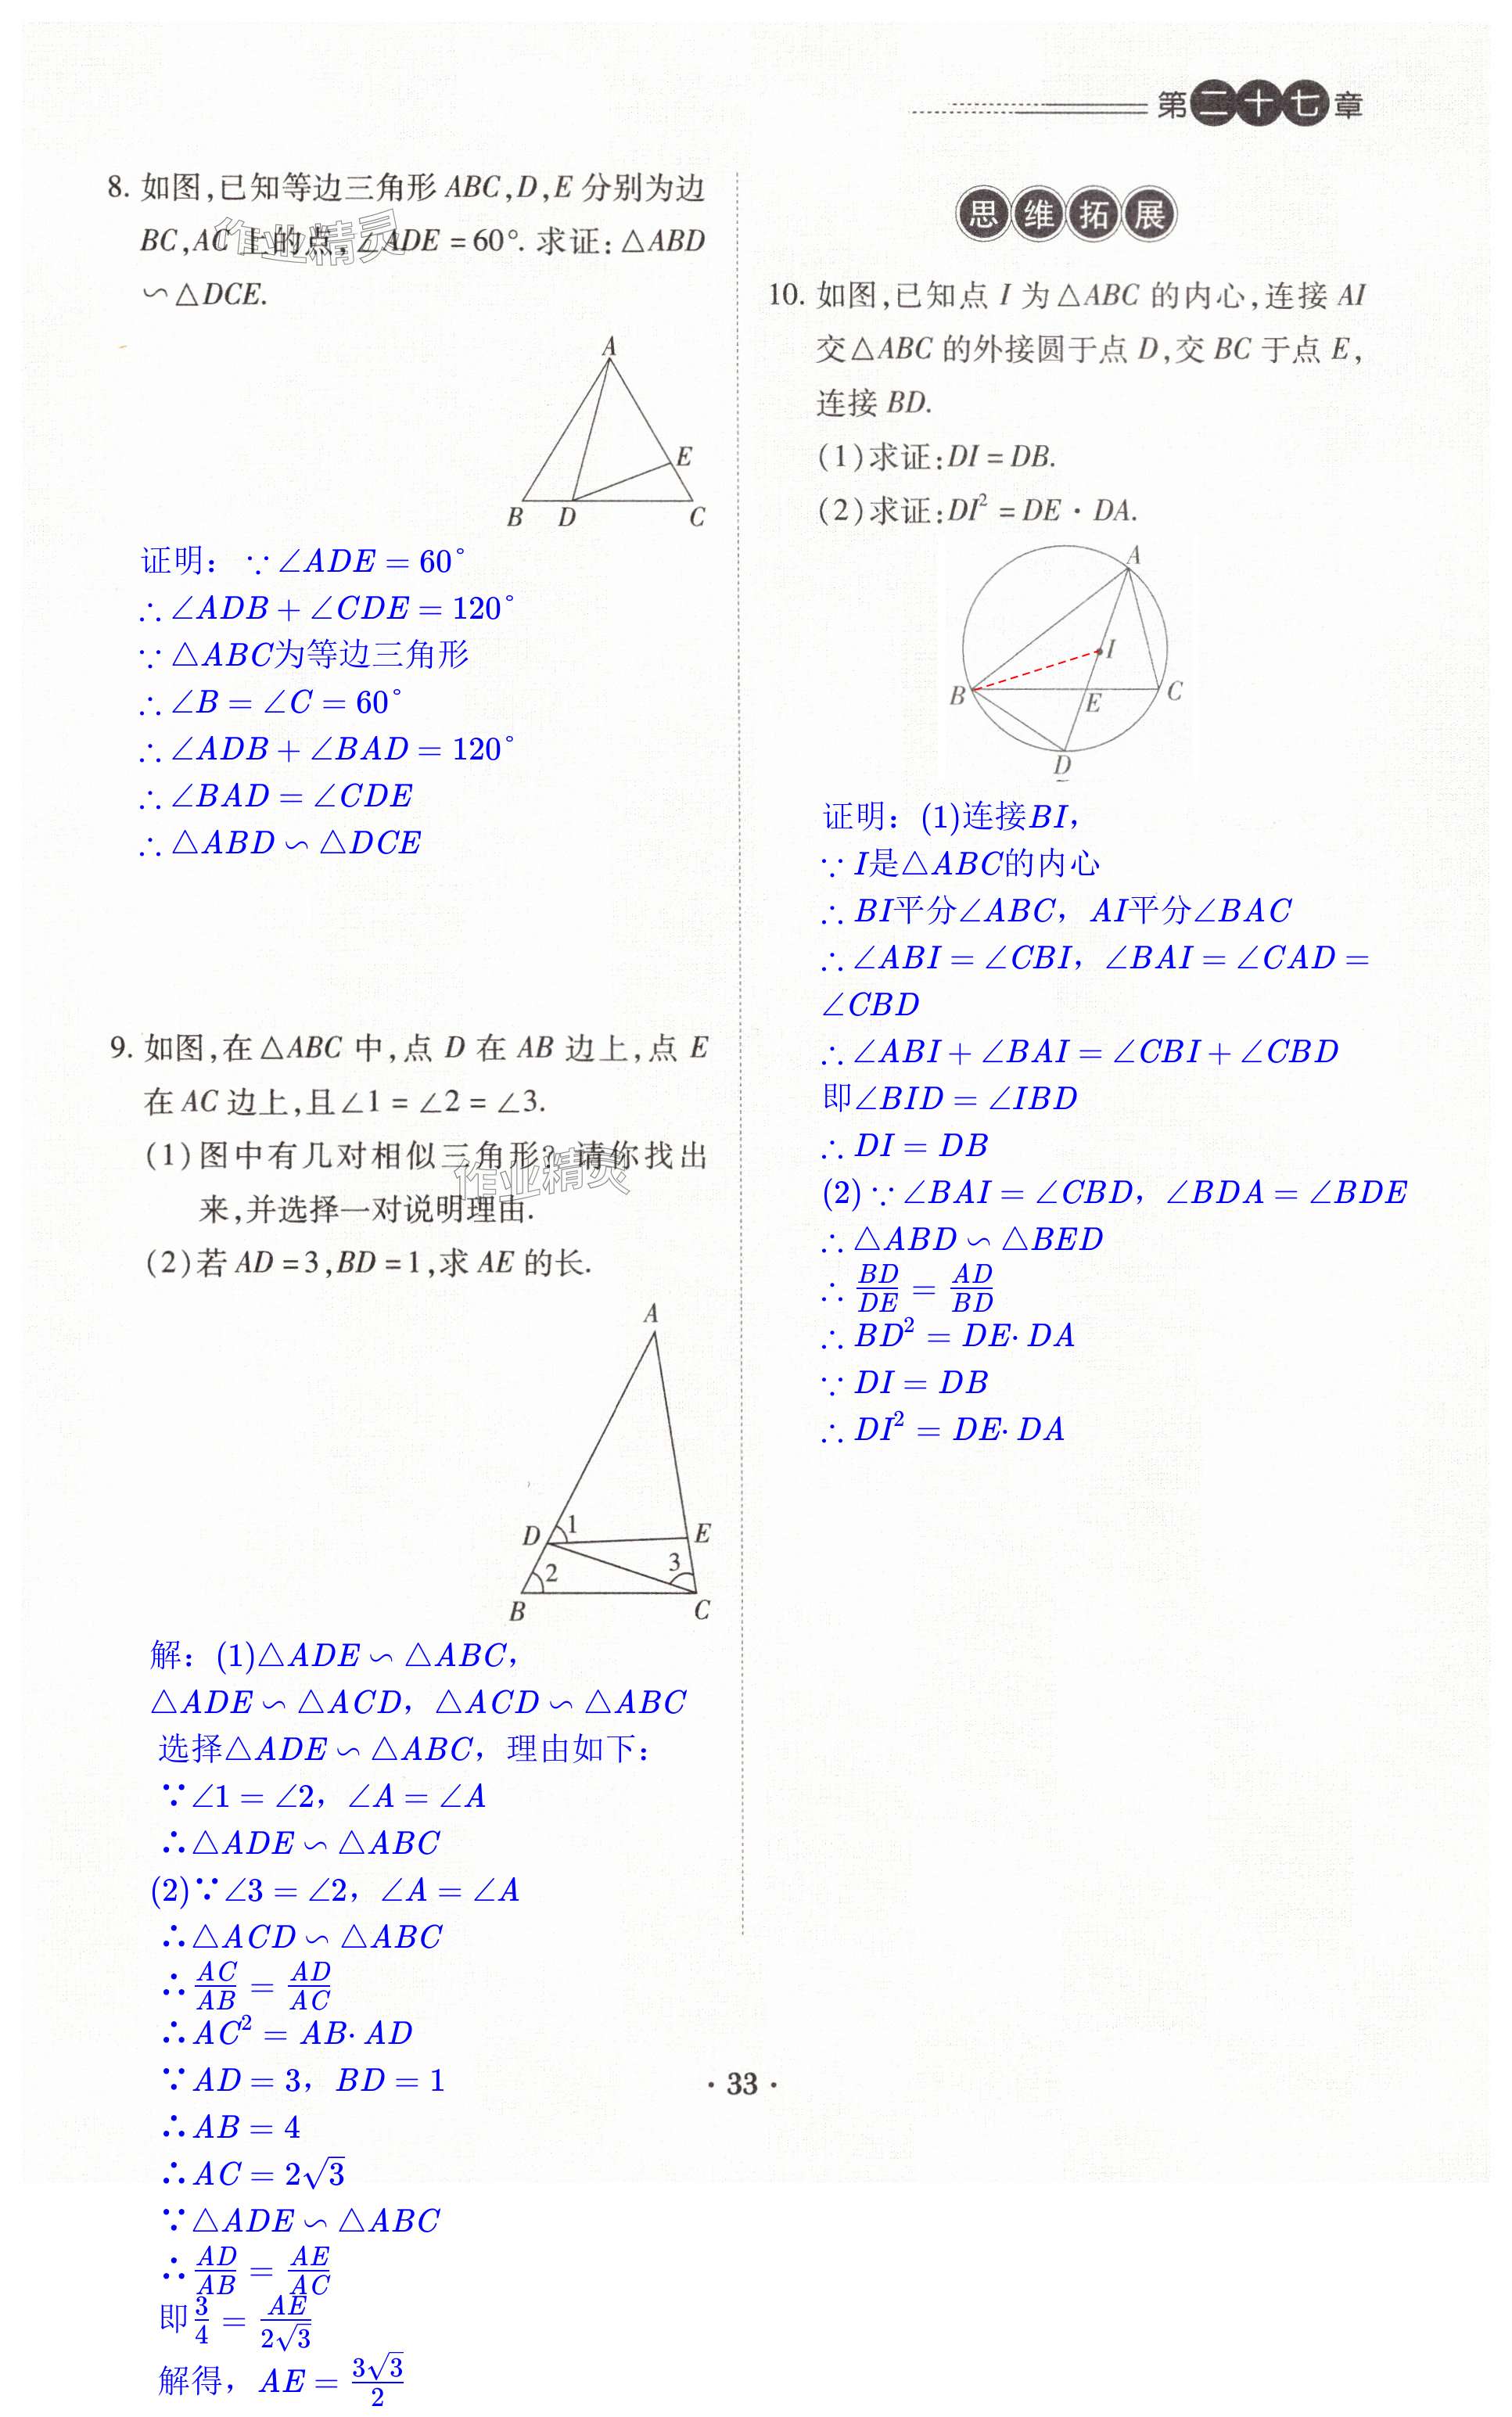 第二十七章
8. 如图,已知等边三角形 ABC,D,E 分别为边
BC,AC 上的点,∠ADE=60°. 求证:△ABD
∽△DCE.
A
E
B D C
证明： ∵∠ADE = 60°
∴∠ADB + ∠CDE = 120°
∵△ABC为等边三角形
∴∠B = ∠C = 60°
∴∠ADB + ∠BAD = 120°
∴∠BAD = ∠CDE
∴△ABD ∽ △DCE
9. 如图,在△ABC 中,点 D 在 AB 边上,点 E
在 AC 边上,且∠1=∠2=∠3.
(1)图中有几对相似三角形? 请你找出
来,并选择一对说明理由.
(2)若 AD=3,BD=1,求 AE 的长.
A
D 1 E
2 3
B C
解：(1)△ADE ∽ △ABC，
△ADE ∽ △ACD，△ACD ∽ △ABC
选择△ADE ∽ △ABC，理由如下：
∵∠1 = ∠2，∠A = ∠A
∴△ADE ∽ △ABC
(2)∵∠3 = ∠2，∠A = ∠A
∴△ACD ∽ △ABC
∴AC/AB = AD/AC
∴AC² = AB·AD
∵AD = 3，BD = 1
∴AB = 4
∴AC = 2√3
∵△ADE ∽ △ABC
∴AD/AB = AE/AC
即3/4 = AE/2√3
解得，AE = 3√3/2
思维拓展
10. 如图,已知点 I 为△ABC 的内心,连接 AI
交△ABC 的外接圆于点 D,交 BC 于点 E,
连接 BD.
(1)求证:DI=DB.
(2)求证:DI²=DE·DA.
A
I
B E C
D
证明：(1)连接BI，
∵I是△ABC的内心
∴BI平分∠ABC，AI平分∠BAC
∴∠ABI = ∠CBI，∠BAI = ∠CAD =
∠CBD
∴∠ABI + ∠BAI = ∠CBI + ∠CBD
即∠BID = ∠IBD
∴DI = DB
(2)∵∠BAI = ∠CBD，∠BDA = ∠BDE
∴△ABD ∽ △BED
∴BD/DE = AD/BD
∴BD² = DE·DA
∵DI = DB
∴DI² = DE·DA
作业精灵
作业精灵
·33·